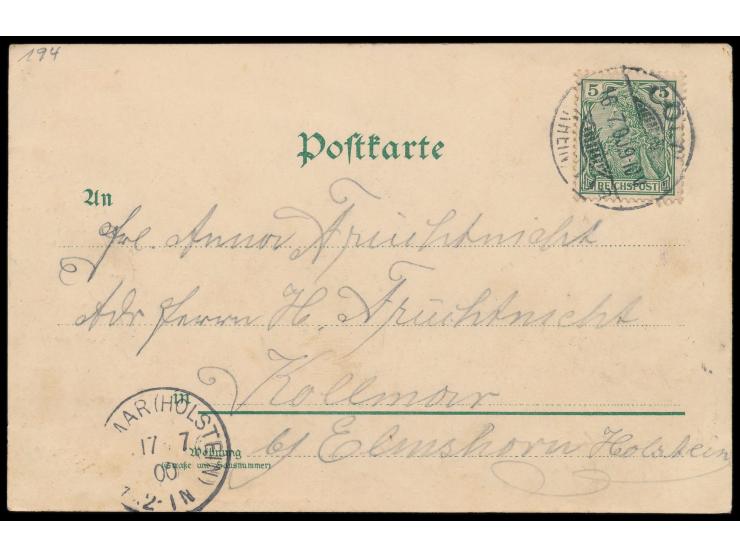 194
5 5
REICHSPOST
RHEIN
16. 7. 00. 9-10
Postkarte
An
Frl. Anna Früchtnicht
Adr Herrn H. Früchtnicht
in Kollmar
b/ Elmshorn Holstein
Wohnung
(Straße und Hausnummer)
MAR (HOLSTEIN)
17 7
00
12-1N